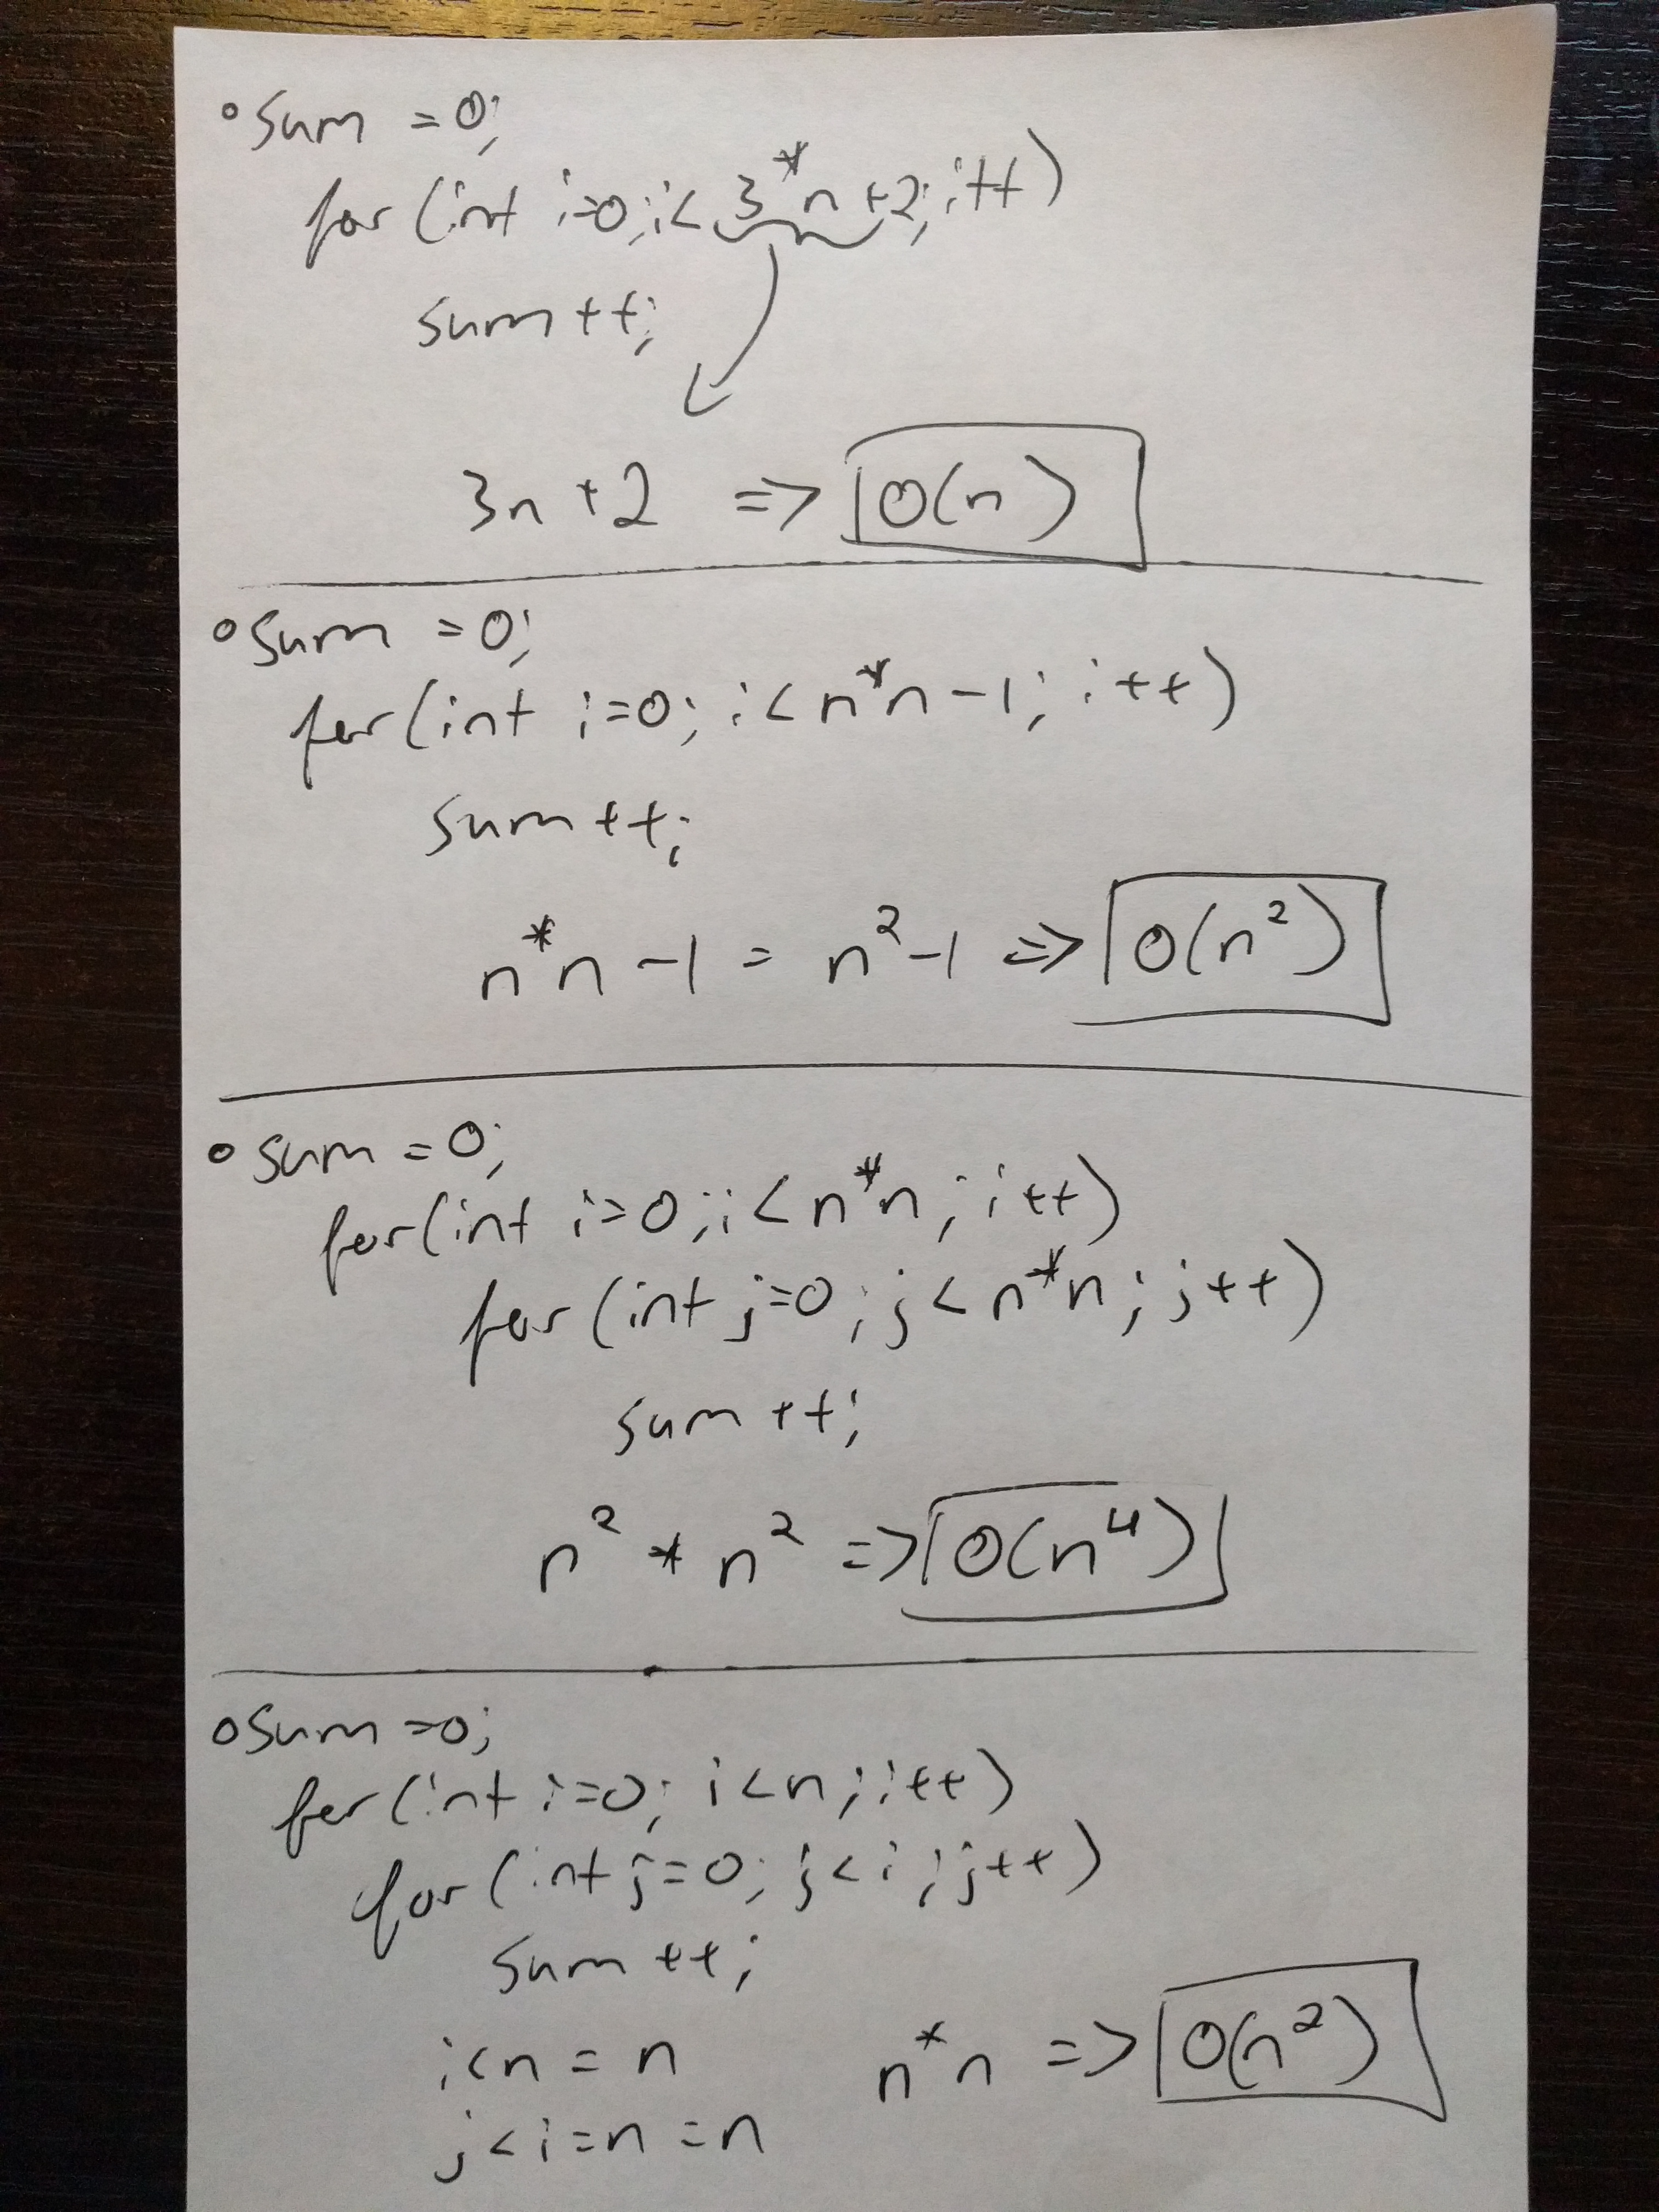 sum = 0;
for (int i=0; i< 3*n+2; i++)
sum++;
3n+2 => O(n)
sum = 0;
for (int i=0; i<n*n-1; i++)
sum++;
n*n-1 = n²-1 => O(n²)
sum = 0;
for (int i=0; i<n*n; i++)
for (int j=0; j<n*n; j++)
sum++;
n² * n² => O(n⁴)
sum=0;
for (int i=0; i<n; i++)
for (int j=0; j<i; j++)
sum++;
i<n = n n*n => O(n²)
j<i=n=n